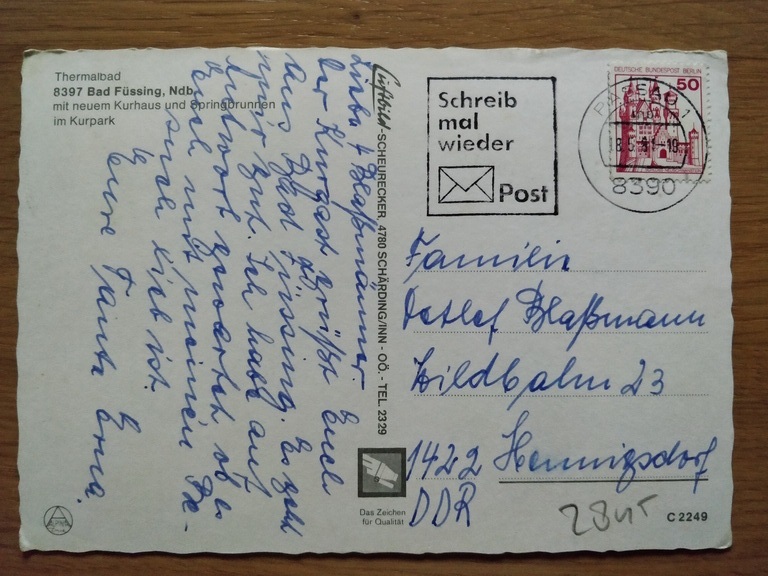 Thermalbad
8397 Bad Füssing, Ndb.
mit neuem Kurhaus und Springbrunnen
im Kurpark
Liebe 4 Blaßmänner
Der Kurgast grüßt Euch
aus Bad Füssing. Es geht
mir gut. Ich habe auf
Antwort gewartet ob es
Euch mit meinen Be-
such lieb ist.
Eure Tante Erna.
Luftbild-SCHEURECKER, 4780 SCHÄRDING/INN - OÖ. - TEL. 2329
Das Zeichen
für Qualität
Schreib
mal
wieder
Post
DEUTSCHE BUNDESPOST BERLIN
50
PASSAU 1
8390
Familie
Detlef Blaßmann
Wildbahn 23
1422 Hennigsdorf
DDR
C 2249